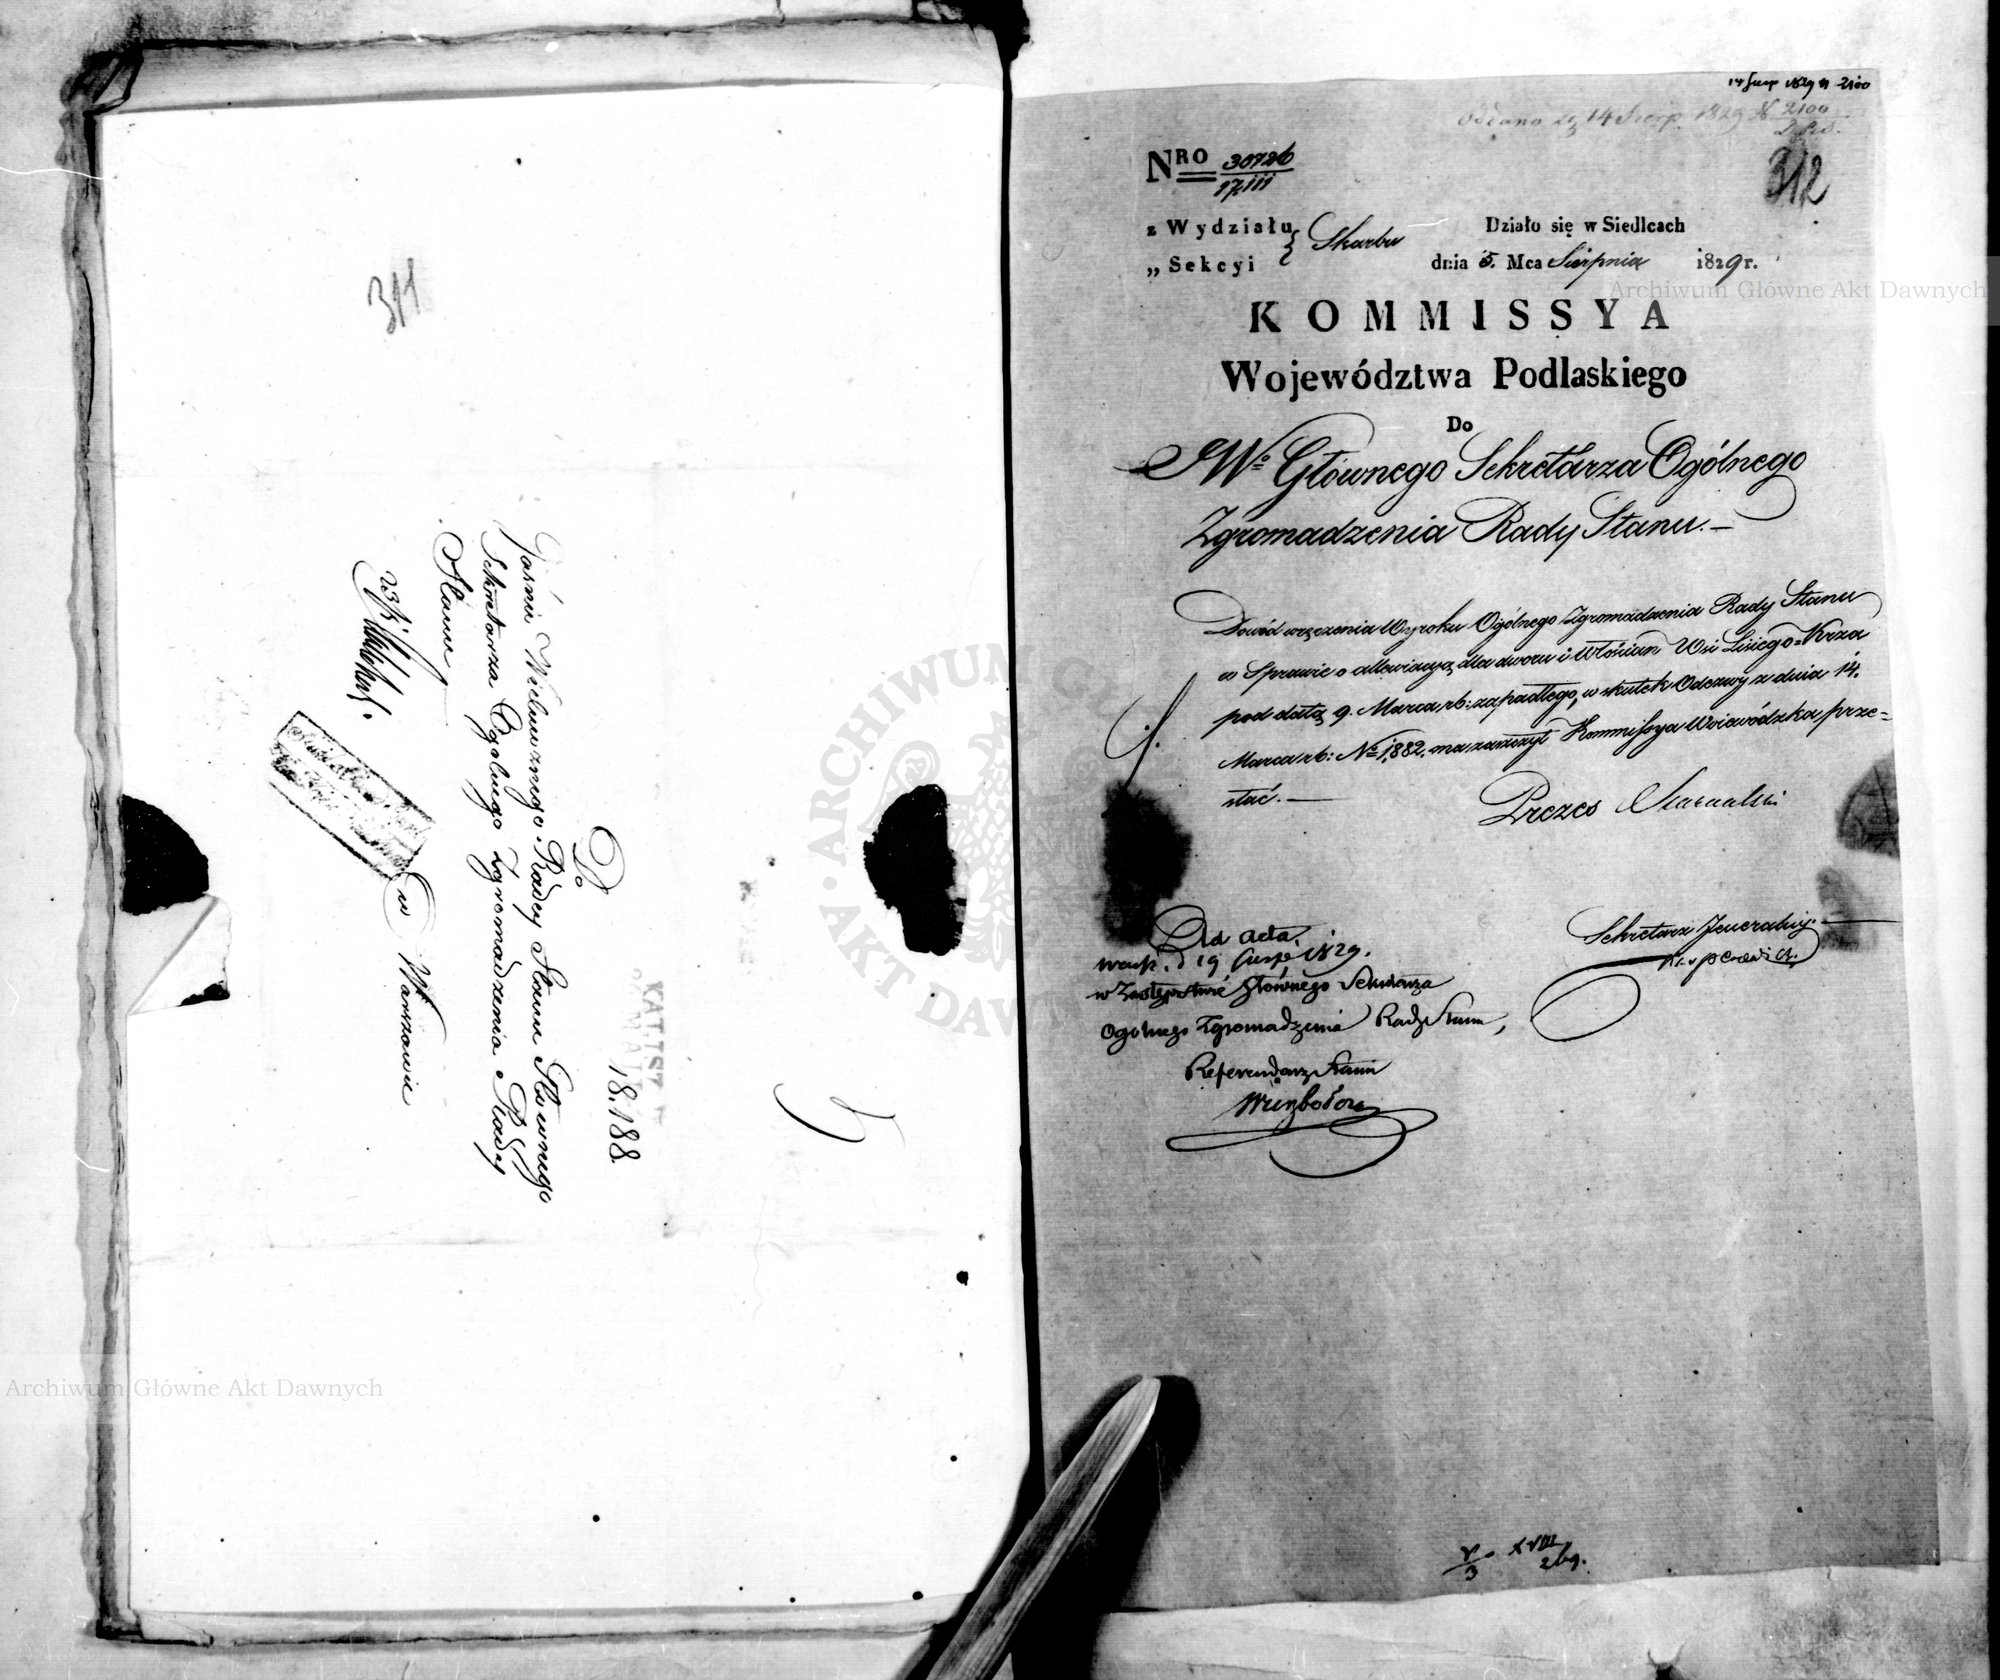 311
Do
Jaśnie Wielmożnego Radcy Stanu Głównego
Sekretarza Ogólnego Zgromadzenia Rady
Stanu
w Warszawie
18.188
14 Sierp 1829 N 2100
Oddano dn 14 Sierp. 1829 N 2100
312
NRO 30726
17.111
z Wydziału Skarbu
„ Sekcyi
Działo się w Siedlcach
dnia 5. Mca Sierpnia 1829 r.
KOMMISSYA
Województwa Podlaskiego
Do
JWo Głównego Sekretarza Ogólnego
Zgromadzenia Rady Stanu.—
Dowód wręczenia Wyroku Ogólnego Zgromadzenia Rady Stanu
w Sprawie o allewiacyą dla dworu i Włościan Wsi Lisiego=Krza
pod datą 9. Marca rb: zapadłego, w skutek Odezwy z dnia 14.
Marca rb: No 1,882. ma zaszczyt Kommissya Woiewódzka prze=
słać.—
Prezes
Sekretarz Jeneralny.
Ad acta.
d 19 Sierp 1829.
w Zastępstwie Głównego Sekretarza
Ogólnego Zgromadzenia Rady Stanu,
Referendarz Stanu
Wierzbołow
XVIII
Archiwum Główne Akt Dawnych
Archiwum Główne Akt Dawnych
ARCHIWUM GŁÓWNE AKT DAWNYCH